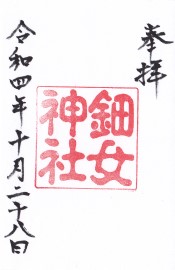 奉拝
鈿女
神社
令和四年十月二十八日